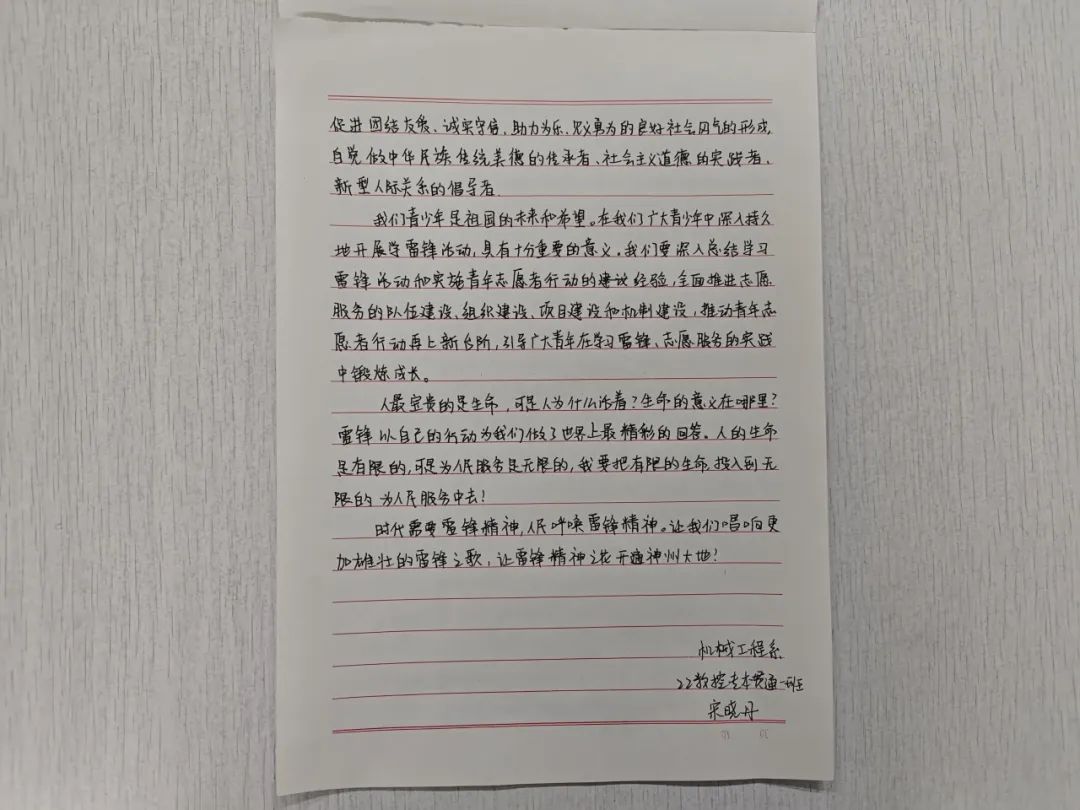 促进团结友爱、诚实守信、助人为乐、见义勇为的良好社会风气的形成,
自觉做中华民族传统美德的传承者、社会主义道德的实践者、
新型人际关系的倡导者
我们青少年是祖国的未来和希望。在我们广大青少年中深入持久
地开展学雷锋活动,具有十分重要的意义。我们要深入总结学习
雷锋活动和实施青年志愿者行动的建议经验,全面推进志愿
服务的队伍建设、组织建设、项目建设和机制建设,推动青年志
愿者行动再上新台阶,引导广大青年在学习雷锋、志愿服务的实践
中锻炼成长。
人最宝贵的是生命,可是人为什么活着?生命的意义在哪里?
雷锋以自己的行动为我们做了世界上最精彩的回答。人的生命
是有限的,可是为人民服务是无限的,我要把有限的生命,投入到无
限的为人民服务中去!
时代需要雷锋精神,人民呼唤雷锋精神。让我们唱响更
加雄壮的雷锋之歌,让雷锋精神之花开遍神州大地!
机械工程系
22数控专本贯通一班
宋晓丹